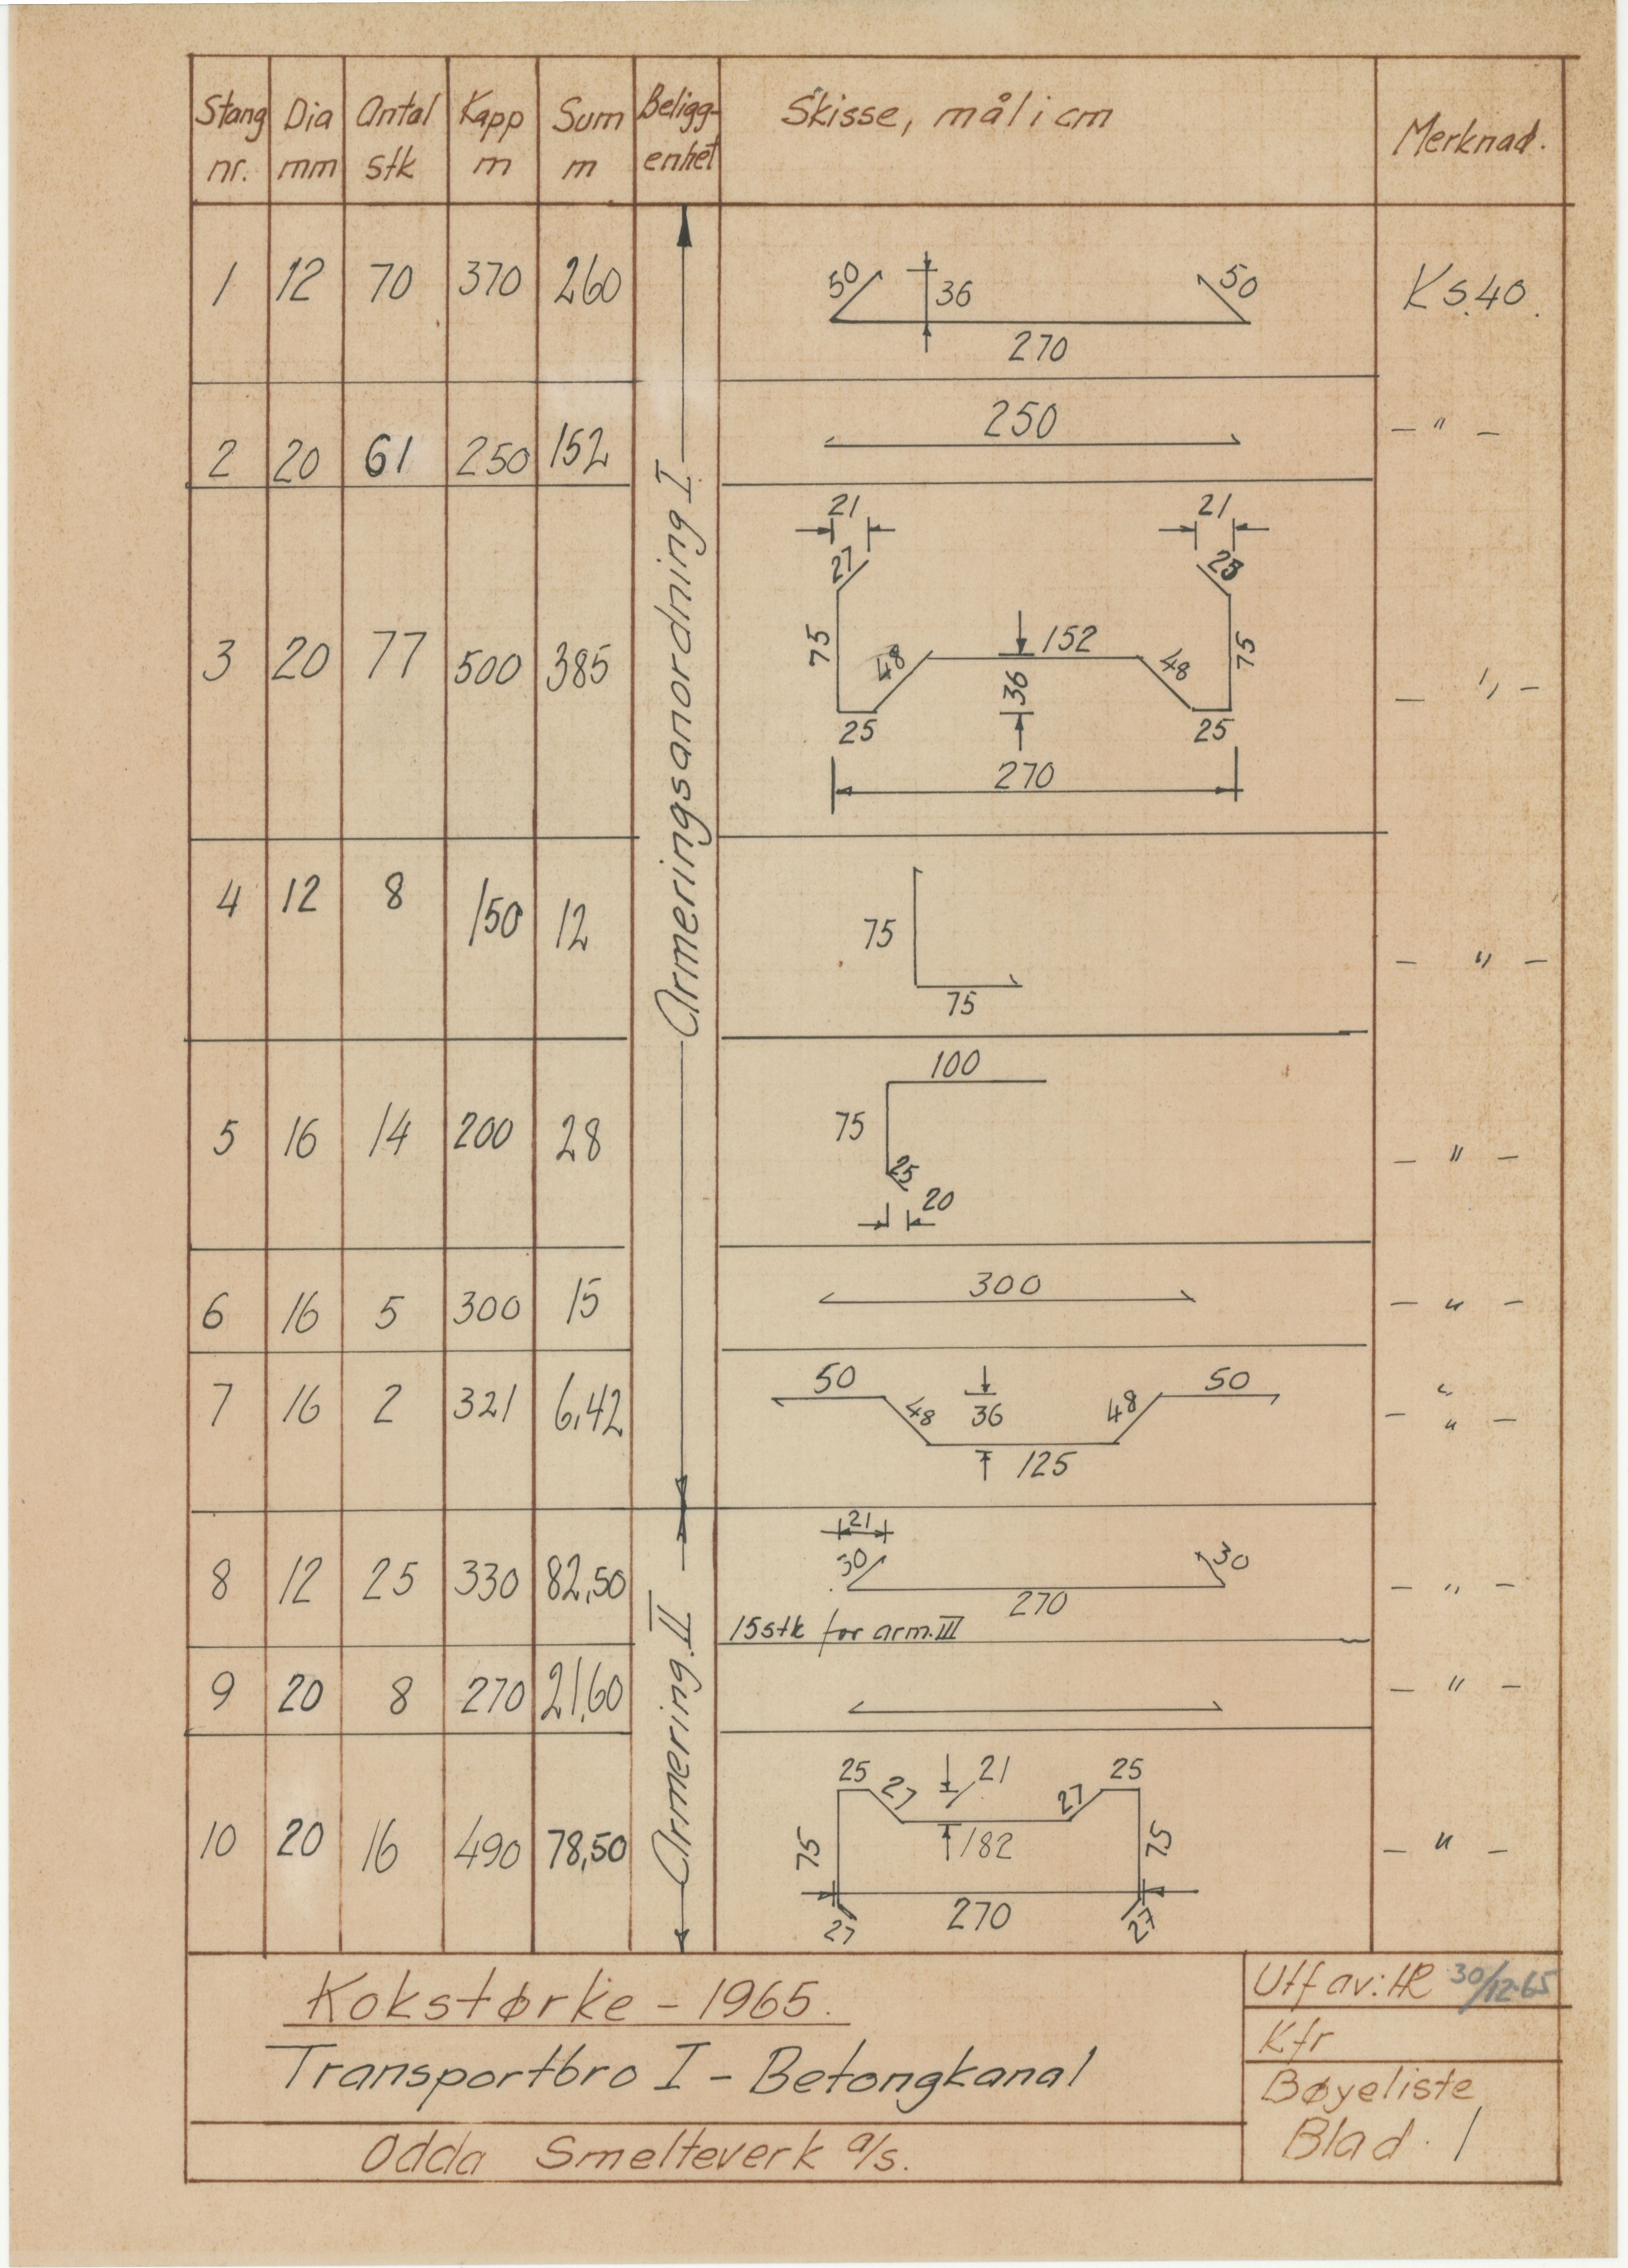 Stang nr. Dia mm Antal stk Kapp m Sum m Beligg-enhet Skisse, mål i cm Merknad.
1 12 70 370 260 50 36 50 270 Ks.40.
2 20 61 250 152 250 — " —
3 20 77 500 385 21 21 27 75 48 152 36 48 75 25 25 270 — " —
4 12 8 150 12 75 75 — " —
5 16 14 200 28 100 75 25 20 — " —
6 16 5 300 15 300 — " —
7 16 2 321 6,42 50 48 36 48 50 125 — " —
Armeringsanordning I
8 12 25 330 82,50 21 30 30 270 — " —
15 stk for arm. III
9 20 8 270 21,60 — " —
10 20 16 490 78,50 25 27 21 27 25 75 182 75 270 27 27 — " —
Armering. II
Kokstørke – 1965.
Transportbro I – Betongkanal
Odda Smelteverk a/s.
Utf av: HR 30/12-65
Kfr
Bøyeliste
Blad. 1